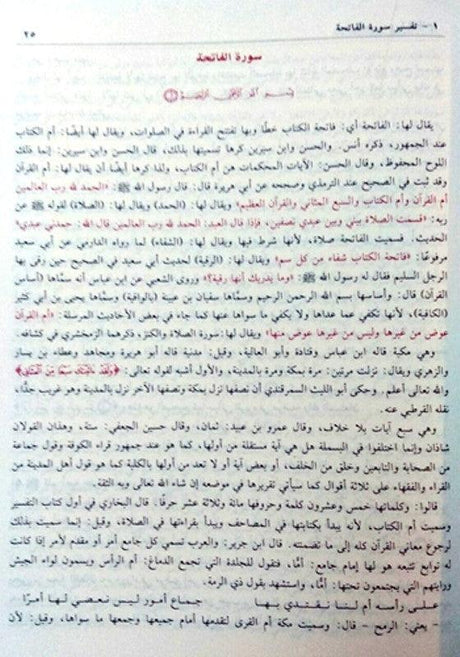 ١ - تفسير سورة الفاتحة ٢٥
سورة الفاتحة
بسم الله الرحمن الرحيم
يقال لها: الفاتحة أي: فاتحة الكتاب خطًّا وبها تفتتح القراءة في الصلوات، ويقال لها أيضًا: أم الكتاب
عند الجمهور، ذكره أنس. والحسن وابن سيرين كرها تسميتها بذلك، قال الحسن وابن سيرين: إنما ذلك
اللوح المحفوظ، وقال الحسن: الآيات المحكمات هن أم الكتاب، ولذا كرها أيضًا أن يقال لها: أم القرآن
وقد ثبت في الصحيح عند الترمذي وصححه عن أبي هريرة قال: قال رسول الله ﷺ: «الحمد لله رب العالمين
أم القرآن وأم الكتاب والسبع المثاني والقرآن العظيم» ويقال لها: (الحمد) ويقال لها: (الصلاة) لقوله ﷺ عن
ربه: «قسمت الصلاة بيني وبين عبدي نصفين، فإذا قال العبد: الحمد لله رب العالمين قال الله: حمدني عبدي»
الحديث. فسميت الفاتحة صلاة، لأنها شرط فيها ويقال لها: (الشفاء) لما رواه الدارمي عن أبي سعيد
مرفوعًا: «فاتحة الكتاب شفاء من كل سم» ويقال لها: (الرقية) لحديث أبي سعيد في الصحيح حين رقى بها
الرجل السليم فقال له رسول الله ﷺ: «وما يدريك أنها رقية؟». وروى الشعبي عن ابن عباس أنه سمّاها (أساس
القرآن) قال: وأساسها بسم الله الرحمن الرحيم وسمّاها سفيان بن عيينة (بالواقية) وسمّاها يحيى بن أبي كثير
(الكافية)، لأنها تكفي عما عداها ولا يكفي ما سواها عنها كما جاء في بعض الأحاديث المرسلة: «أم القرآن
عوض من غيرها وليس من غيرها عوض منها» ويقال لها: سورة الصلاة والكنز، ذكرهما الزمخشري في كشافه.
وهي مكية قاله ابن عباس وقتادة وأبو العالية، وقيل: مدنية قاله أبو هريرة ومجاهد وعطاء بن يسار
والزهري ويقال: نزلت مرتين: مرة بمكة ومرة بالمدينة، والأول أشبه لقوله تعالى: ﴿ولقد آتيناك سبعا من المثاني﴾
والله تعالى أعلم. وحكى أبو الليث السمرقندي أن نصفها نزل بمكة ونصفها الآخر نزل بالمدينة وهو غريب جدًّا،
نقله القرطبي عنه.
وهي سبع آيات بلا خلاف، وقال عمرو بن عبيد: ثمان، وقال حسين الجعفي: ستة، وهذان القولان
شاذان وإنما اختلفوا في البسملة هل هي آية مستقلة من أولها، كما هو عند جمهور قراء الكوفة وقول جماعة
من الصحابة والتابعين وخلق من الخلف، أو بعض آية أو لا تعد من أولها بالكلية كما هو قول أهل المدينة من
القراء والفقهاء على ثلاثة أقوال كما سيأتي تقريرها في موضعه إن شاء الله تعالى وبه الثقة.
قالوا: وكلماتها خمس وعشرون كلمة وحروفها مائة وثلاثة عشر حرفًا. قال البخاري في أول كتاب التفسير
وسميت أم الكتاب، لأنه يبدأ بكتابتها في المصاحف ويبدأ بقراءتها في الصلاة، وقيل: إنما سميت بذلك
لرجوع معاني القرآن كله إلى ما تضمنته. قال ابن جرير: والعرب تسمي كل جامع أمر أو مقدم لأمر إذا كانت
له توابع تتبعه هو لها إمام جامع: أمًّا، فتقول للجلدة التي تجمع الدماغ: أم الرأس ويسمون لواء الجيش
ورايتهم التي يجتمعون تحتها: أمًّا، واستشهد بقول ذي الرمة.
على رأسه أم لنا نقتدي بها جماع أمور ليس نعصي لها أمرًا
- يعني: الرمح - قال: وسميت مكة أم القرى لتقدمها أمام جميعها وجمعها ما سواها، وقيل: لأن